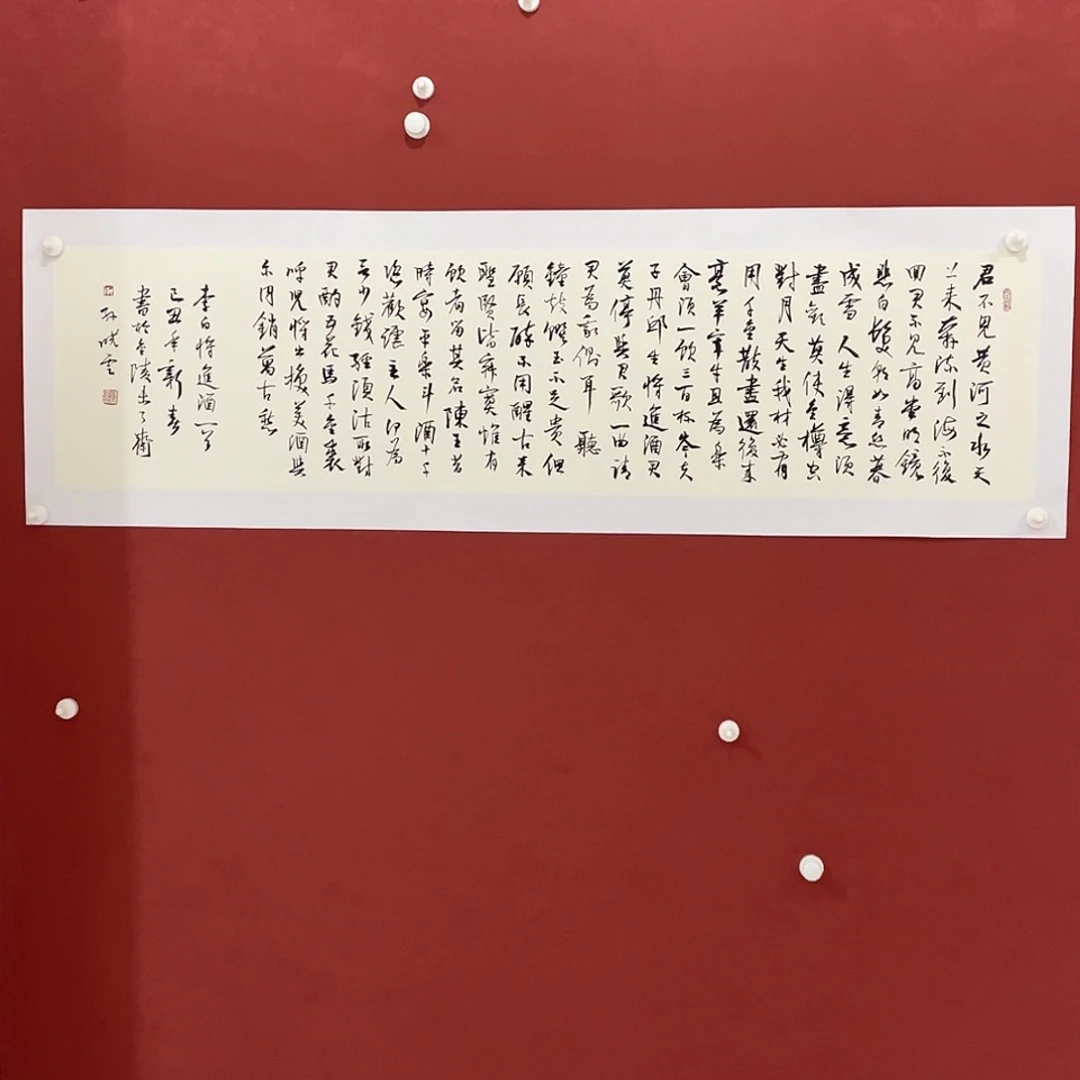 君不見黃河之水天
上來奔流到海不復
回君不見高堂明鏡
悲白髮朝如青絲暮
成雪人生得意須
盡歡莫使金樽空
對月天生我材必有
用千金散盡還復來
烹羊宰牛且為樂
會須一飲三百杯岑夫
子丹邱生將進酒君
莫停與君歌一曲請
君為我側耳聽
鐘鼓饌玉不足貴但
願長醉不用醒古來
聖賢皆寂寞惟有
飲者留其名陳王昔
時宴平樂斗酒十千
恣歡謔主人何為
言少錢徑須沽取對
君酌五花馬千金裘
呼兒將出換美酒與
爾同銷萬古愁
李白將進酒一首
己丑年新春
書於金陵出了齋
孫曉雲